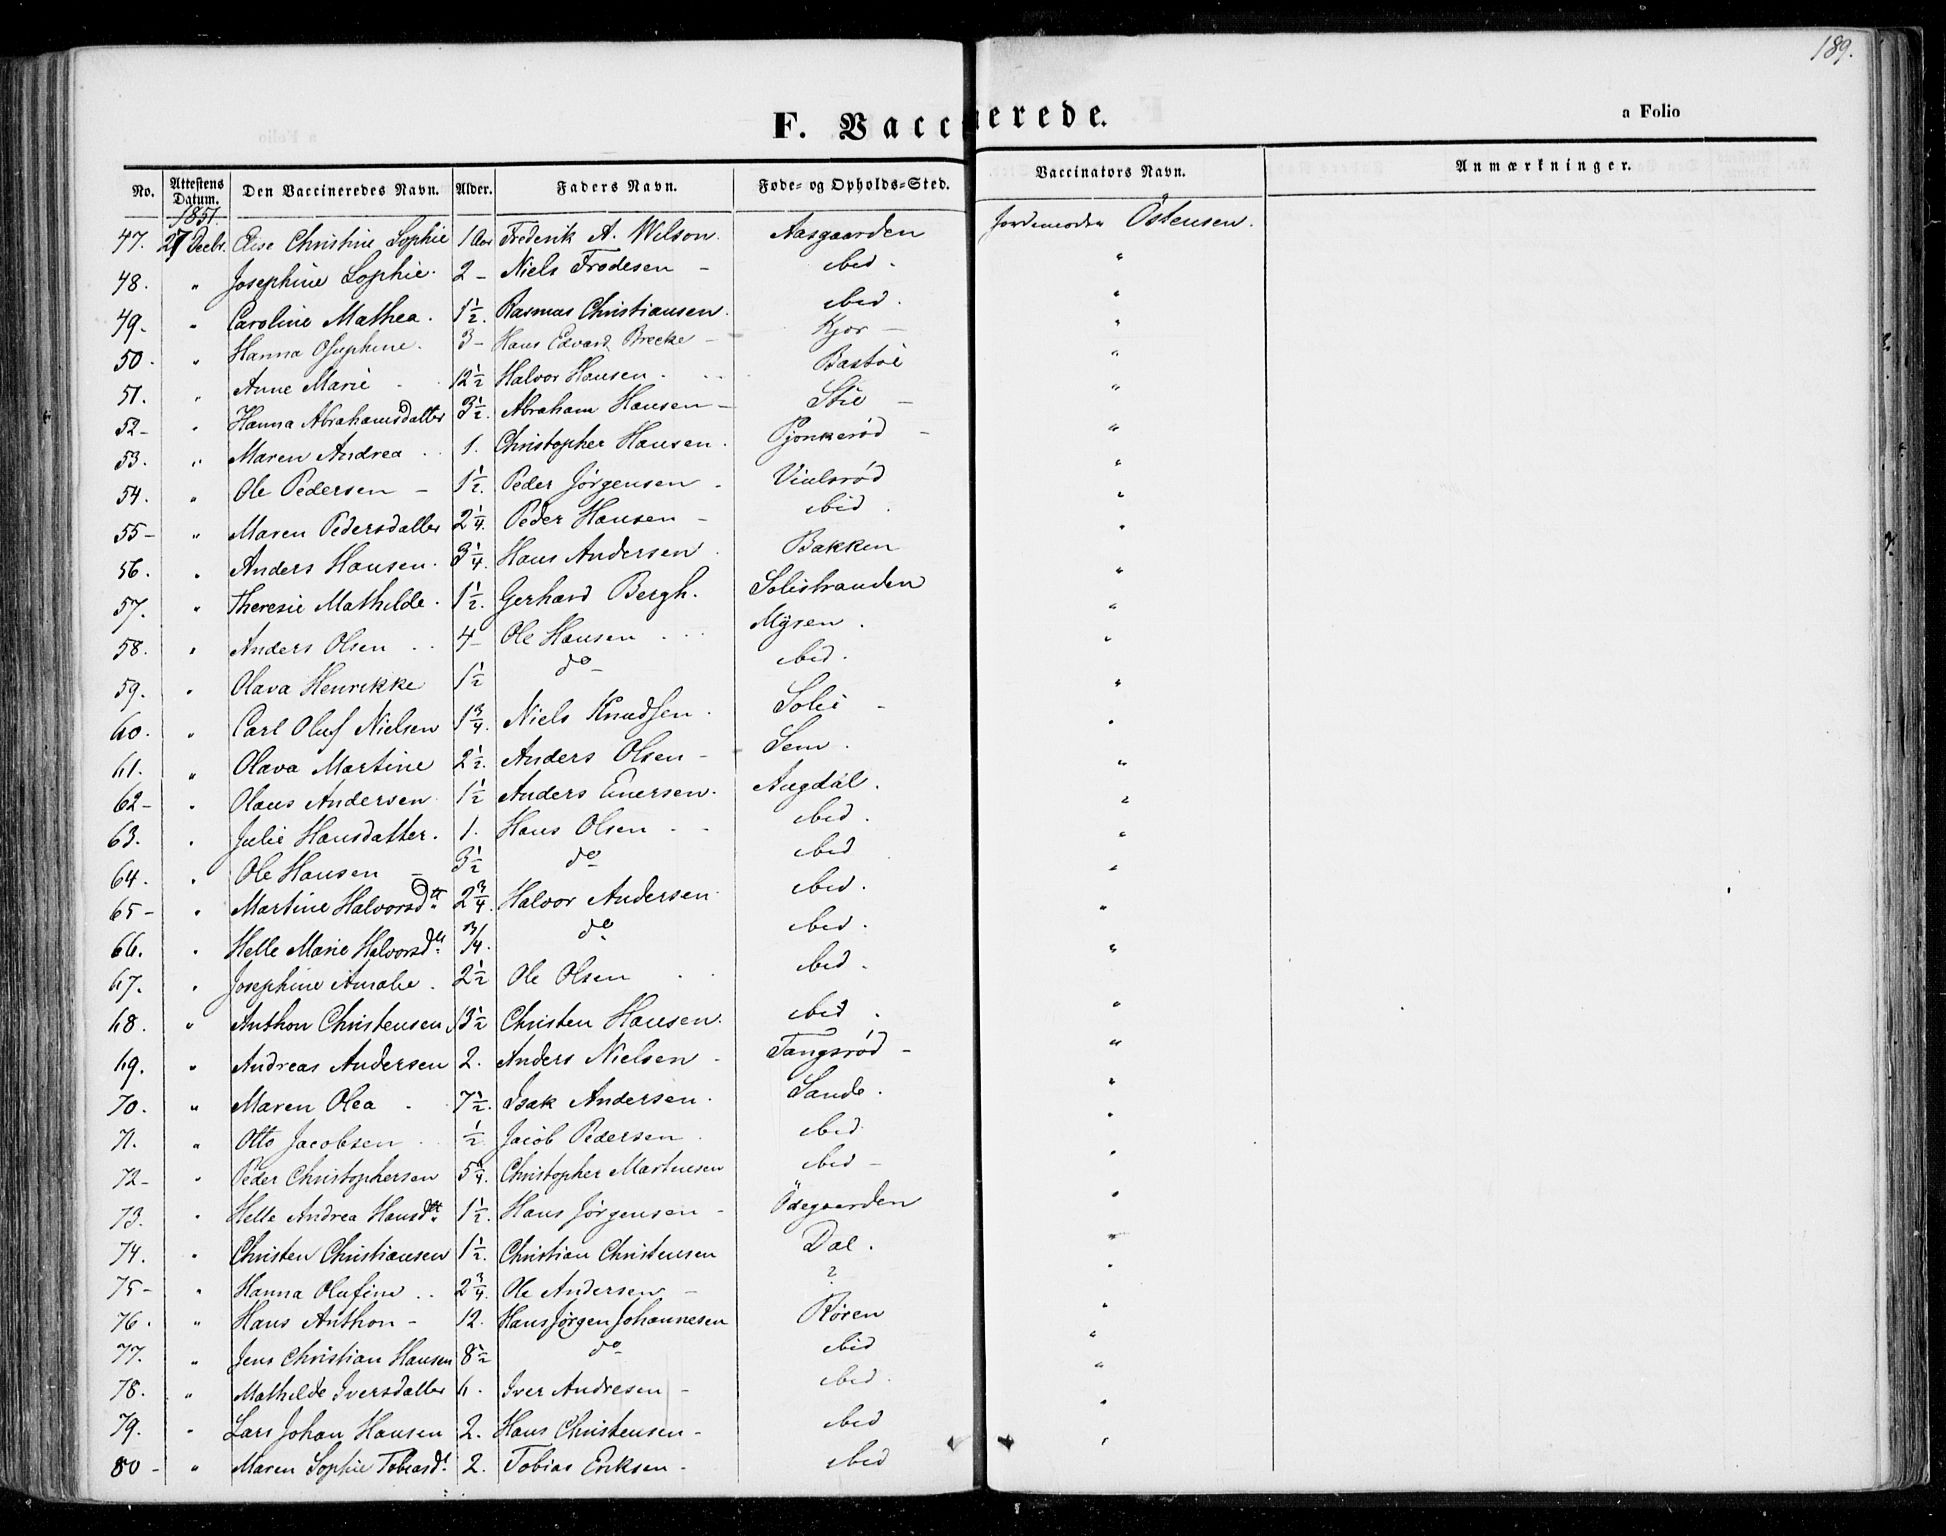 189.
F. Vaccinerede.
a Folio
No. Attestens Datum. Den Vaccineredes Navn. Alder. Faders Navn. Føde- og Opholds-Sted. Vaccinators Navn. Anmærkninger.
1851
47. 27 Decbr. Elise Christine Sophie 1 Aar Frederik A. Wilson. Aasgaarden Jordemoder Östensen.
48. " Josephine Sophie. 2 - Niels Frodesen - ibid. "
49. " Caroline Mathea. 1½. Rasmus Christiansen. ibid. "
50. " Hanna 3 - Hans Edvard Brecke - Kjær - "
51. " Anne Marie 12½ Halvor Hansen. Bastöe "
52 - " Hanna Abrahamsdatter 3½. Abraham Hansen - Stie - "
53. " Maren Andrea 1. Christopher Hansen. Pjonkerød - "
54. " Ole Pedersen - 1½. Peder Jørgensen - Viulsrød "
55 - " Maren Pedersdatter 2¼. Peder Hansen - ibid. "
56. " Anders Hansen. 3¼. Hans Andersen. Bakken "
57. " Theresie Mathilde. 1½. Gerhard Bergh. Soliestranden "
58. " Anders Olsen 4 - Ole Hansen Mysen. "
59. " Olava Henrikke 1½ do - ibid. "
60. " Carl Oluf Nielsen 1¾. Niels Knudsen. Solie - "
61. " Olava Martine 2½. Anders Olsen - Sem. "
62 - " Olaus Andersen 1½ Anders Enersen. Augdal. "
63. " Julie Hansdatter. 1. Hans Olsen - ibid. "
64. " Ole Hansen - 3½ do ibid "
65 - " Martine Halvorsdtr. 2¾. Halvor Andersen ibid. "
66. " Helle Marie Halvorsdtr. ¾. do ibid. "
67. " Josephine Amalie. 2½ Ole Olsen ibid. "
68. " Anthon Christensen 13½ Christen Hansen. ibid. "
69. " Andreas Andersen 2. Anders Nielsen - Tangsrød - "
70. " Maren Olea 7½. Isak Andersen. Sande. "
71. " Otto Jacobsen ½. Jacob Pedersen ibid. "
72 - " Peder Christophersen 5¼. Christopher Martinsen ibid - "
73. " Helle Andrea Hansdtr. 1½. Hans Jørgensen - Ödegaarden "
74. " Christen Christiansen 1½. Christian Christensen Dal. "
75 - " Hanna Olufine 2¾. Ole Andersen - ? "
76. " Hans Anthon - 12. Hans Jørgen Johannesen Røren "
77. " Jens Christian Hansen 8½ do ibid "
78. " Mathilde Iversdatter 6. Iver Andresen - ibid. "
79. " Lars Johan Hansen 2. Hans Christensen - ibid "
80 - " Maren Sophie Tobiasd. 2. Tobias Eriksen - ibid "